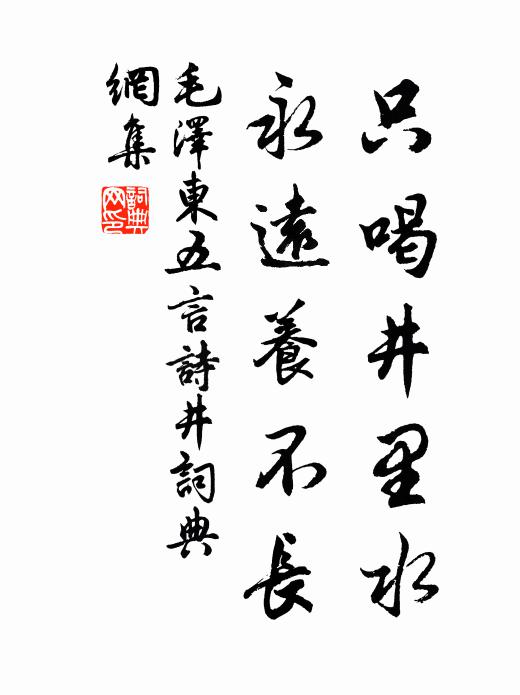 只喝井里水
永遠養不長
毛澤東五言詩井詞典
網集
詞典网印